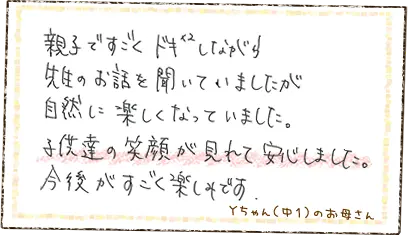 親子ですごく ドキ×2しながら
先生のお話を聞いていましたが
自然に楽しくなっていました。
子供達の笑顔が見れて安心しました。
今後がすごく楽しみです.
Yちゃん(中1)のお母さん